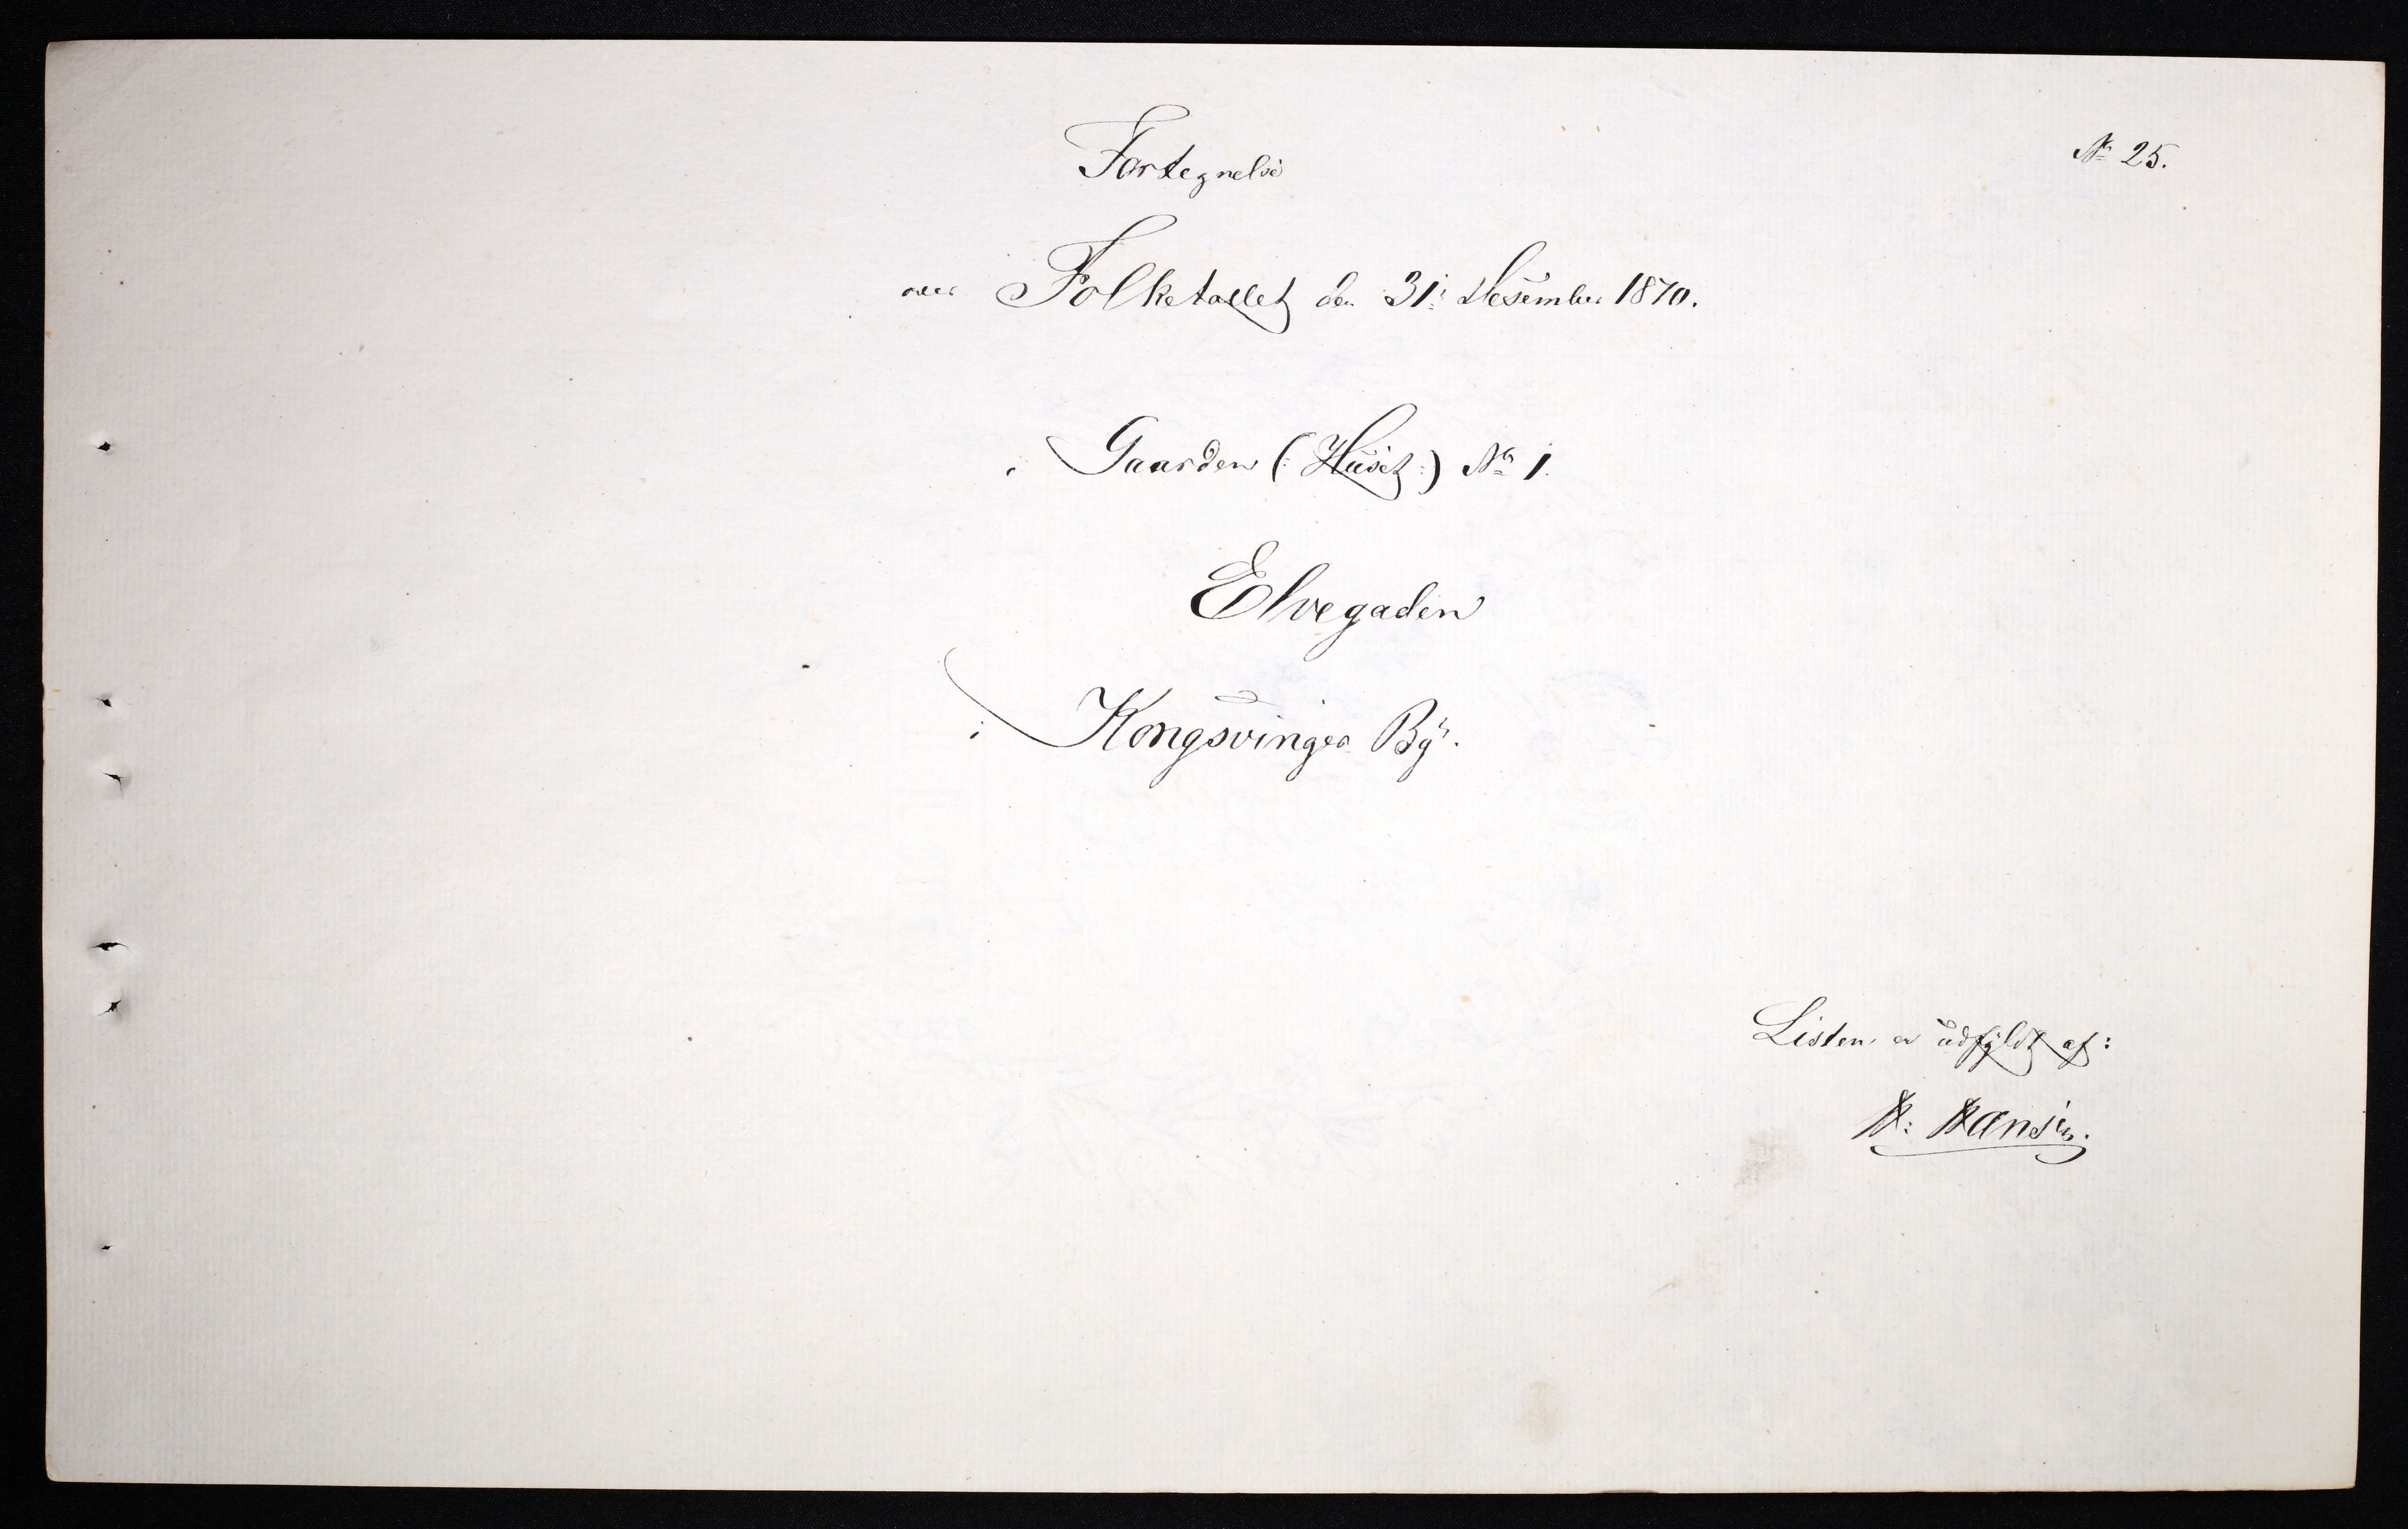 Fortegnelse
No 25.
over Folketallet den 31: Desember 1870.
i Gaarden (: Huset :) No 1.
Elvegaden
i Kongsvinger By.
Listen er udfyldt af:
H: Hansen.